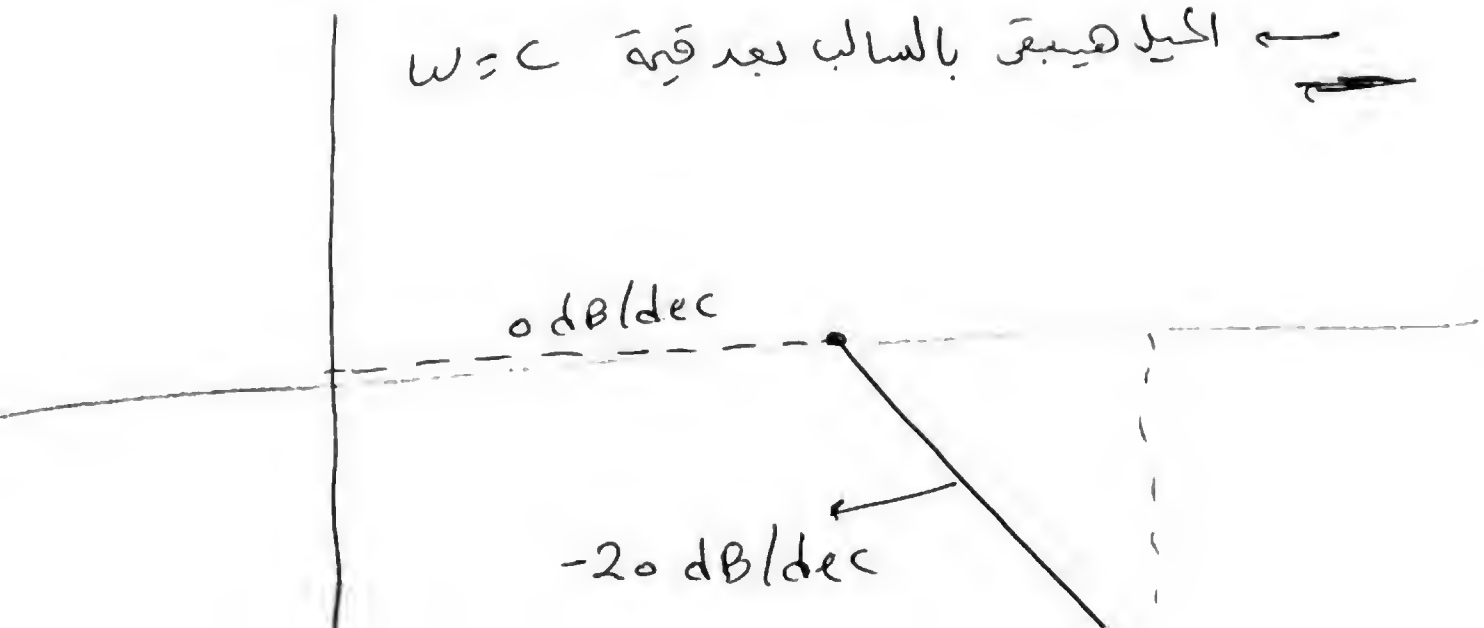 ← الميل هيبقى بالسالب بعد قيمة W = C
0 dB/dec
-20 dB/dec